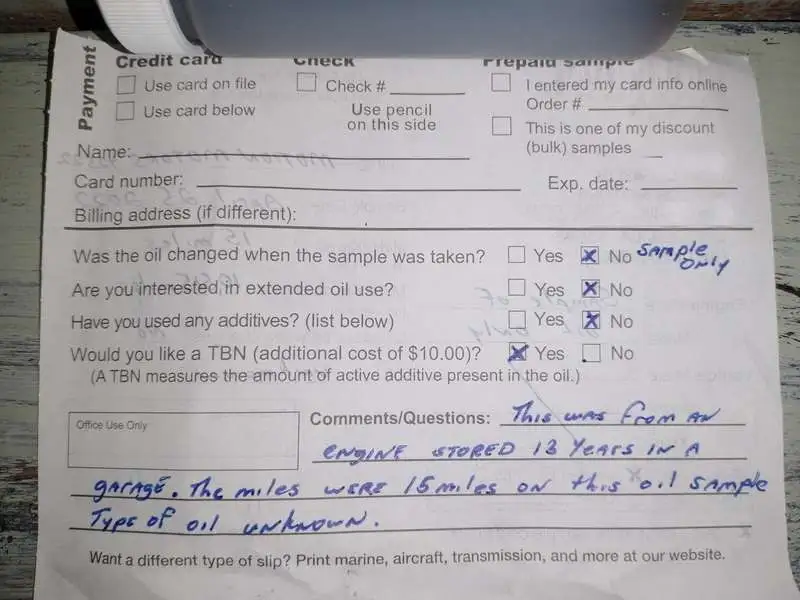 Payment
Credit card Check Prepaid sample
Use card on file Check # I entered my card info online
Order #
Use card below Use pencil on this side This is one of my discount (bulk) samples
Name:
Card number: Exp. date:
Billing address (if different):
Was the oil changed when the sample was taken? Yes X No Sample only
Are you interested in extended oil use? Yes X No
Have you used any additives? (list below) Yes X No
Would you like a TBN (additional cost of $10.00)? X Yes No
(A TBN measures the amount of active additive present in the oil.)
Office Use Only
Comments/Questions: This was from an
engine stored 13 years in a
garage. The miles were 15 miles on this oil sample
Type of oil unknown.
Want a different type of slip? Print marine, aircraft, transmission, and more at our website.